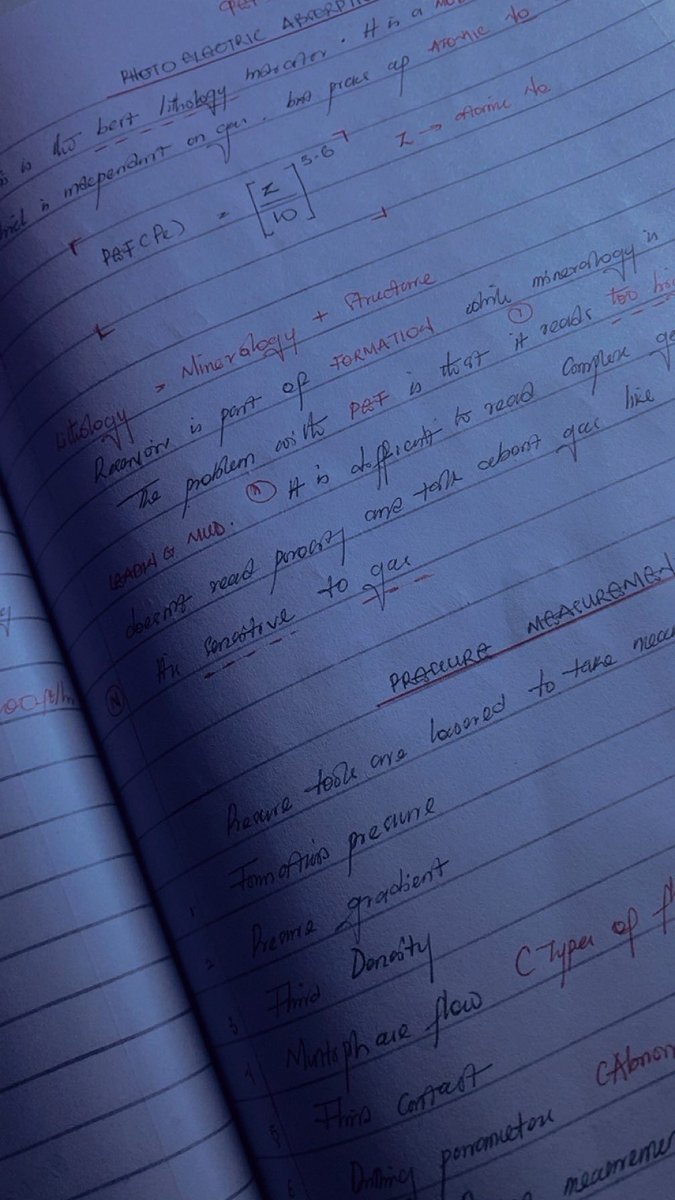 PHOTO ELECTRIC ABSORPTI
is the best lithology indicator. It is a
is independent on gas. but picks up ATOMIC No
PEF (Pe) = [Z/10]^3.6 Z → Atomic No
Lithology = Mineralogy + Structure
Reservoir is part of FORMATION while mineralogy is
The problem with PEF is that ① it reads too hi
MUD. It is difficult to read complex ge
doesn't read porosity and talk about gas like
sensitive to gas
PRESSURE MEASUREMEN
Pressure tools are lowered to take meas
1 Formation pressure
2 Pressure gradient
3 Fluid Density
4 Multiphase flow (Types of f
5 Contact (Abnor
6 Drilling parameters
measureme